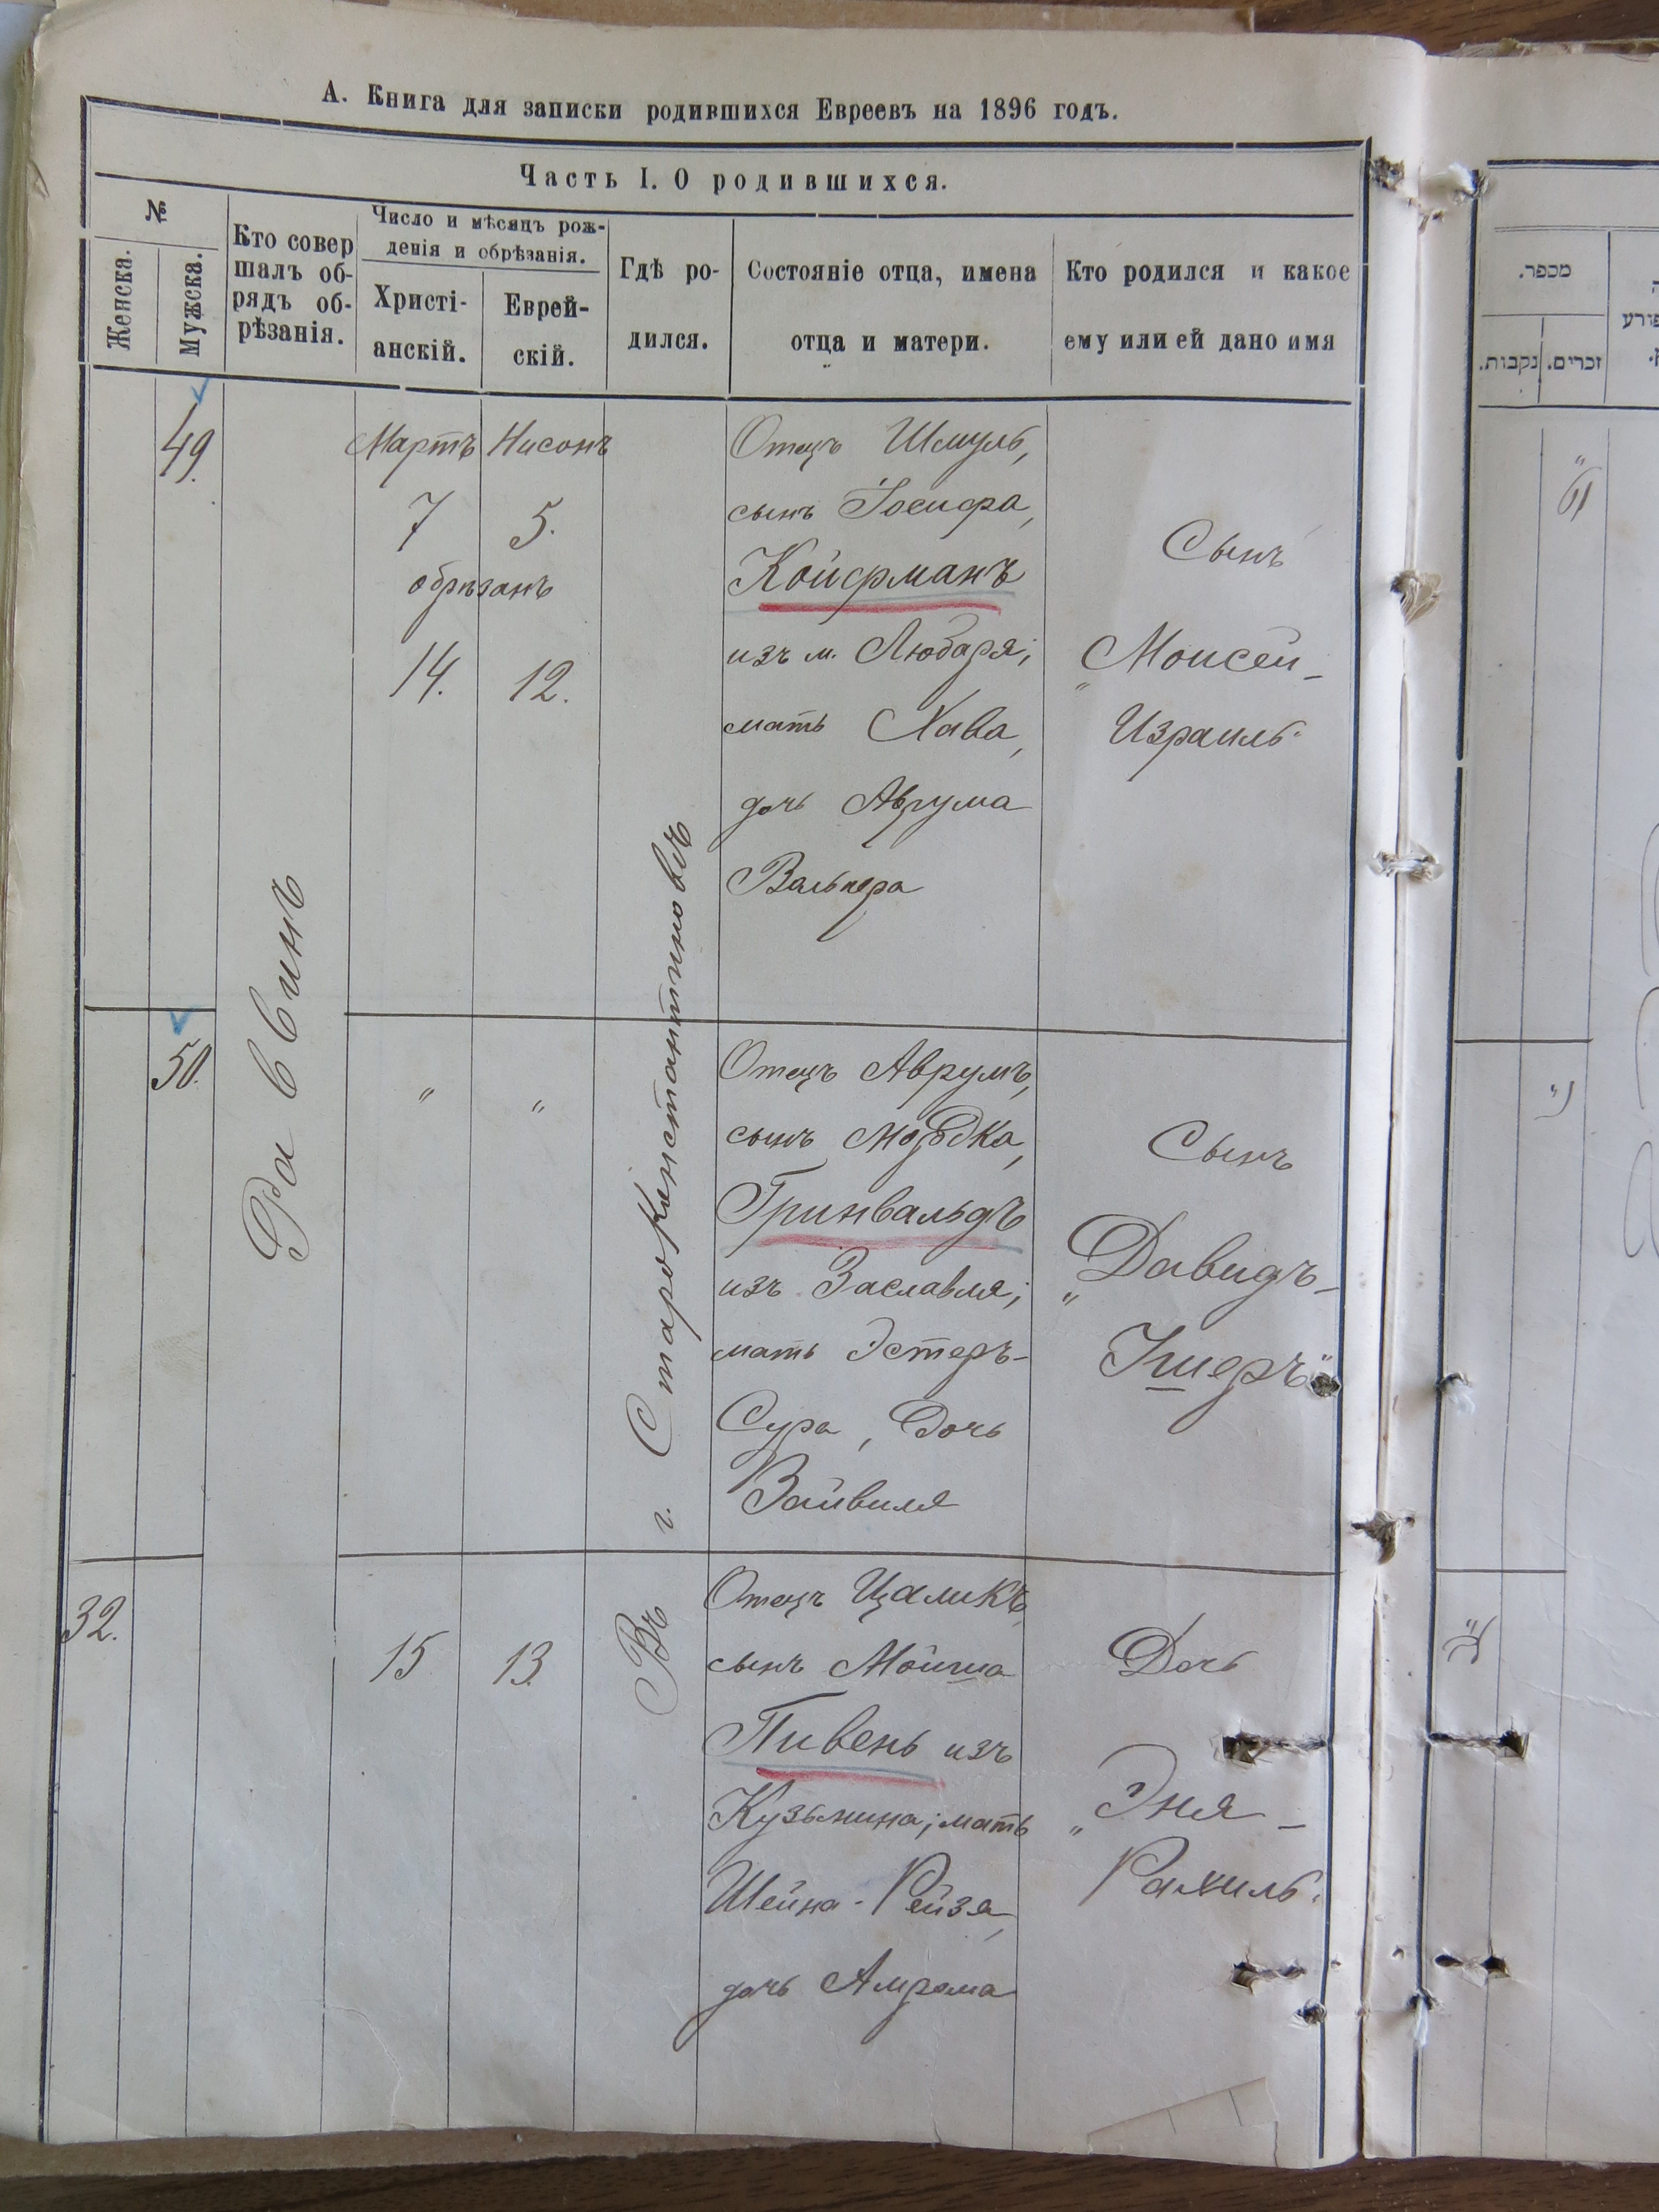 А. Книга для записки родившихся Евреевъ на 1896 годъ.
Часть I. О родившихся.
№
Женска.
Мужска.
Кто совер
шалъ об-
рядъ об-
рѣзанія.
Число и мѣсяцъ рож-
денія и обрѣзанія.
Христі-
анскій.
Еврей-
скій.
Гдѣ ро-
дился.
Состояніе отца, имена
отца и матери.
Кто родился и какое
ему или ей дано имя
49.
Раввинъ
Мартъ
7
обрѣзанъ
14.
Нисонъ
5.
12.
Въ г. Староконстантиновѣ
Отецъ Шмуль,
сынъ Іосифа,
Койфманъ
изъ м. Любаря;
мать Хава,
дочь Аврума
Сынъ
„Моисей-
Израиль"
50.
"
"
Отецъ Аврумъ,
сынъ Мордка,
Гринвальдъ
изъ Заславля;
мать Эстеръ-
Сура, дочь
Вайвиля
Сынъ
„Давидъ-
Ушеръ"
32.
15
13.
Отецъ Цаликъ,
сынъ Мойша
Пивень изъ
Кузьмина; мать
Шейна-Рейзя,
дочь Амрама
Дочь
„Эня-
Рахиль"
מכפר.
זכרים.
נקבות.